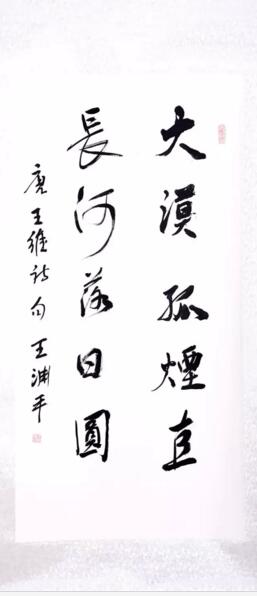 大漠孤煙直
長河落日圓
唐王維詩句 王淵平